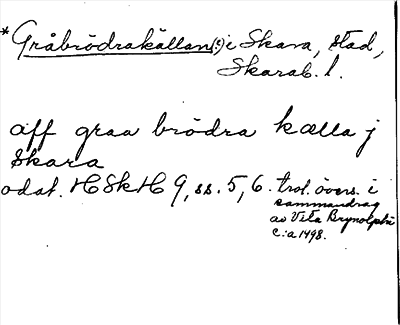 * Gråbrödrakällan(?) i Skara, stad,
Skarab. l.
aff graa brödra kœlla j
Skara
odat. HSkH 9, ss. 5, 6. trol. övers. i
sammandrag
av Vita Brynolphi
c:a 1498.